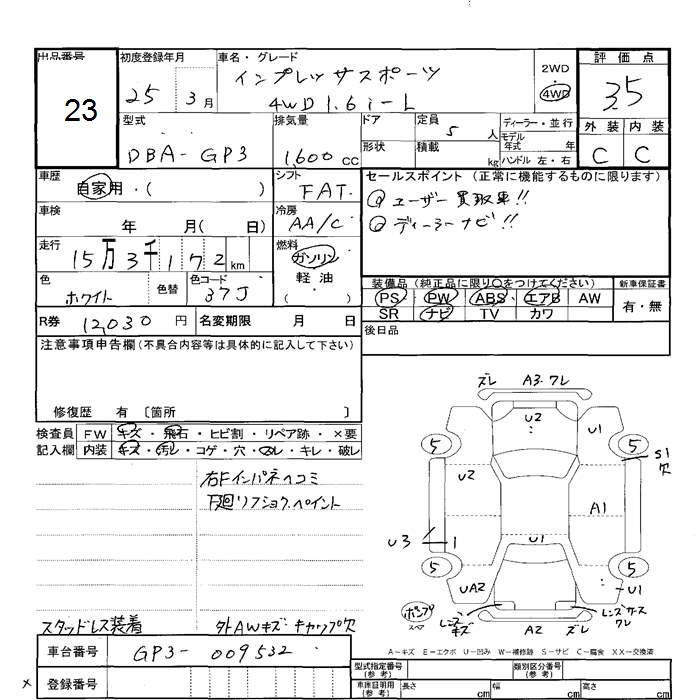 出品番号
23
初度登録年月
25年 3月
車名・グレード
インプレッサスポーツ
4WD 1.6i-L
2WD
4WD
評価点
3.5
外装 内装
C C
型式
DBA-GP3
排気量
1,600 cc
ドア
形状
定員 5人
積載 kg
ディーラー・並行
モデル年式 年
ハンドル 左・右
車歴
自家用・( )
シフト
FAT
セールスポイント (正常に機能するものに限ります)
①ユーザー買取車!!
②ディーラーナビ!!
車検
年 月( 日)
冷房
AA/C
走行
15万3千172km
燃料
ガソリン
軽油
( )
色
ホワイト
色替
色コード
37J
装備品(純正品に限り○をつけてください)
PS PW ABS エアB AW
SR ナビ TV カワ
新車保証書
有・無
R券 12,030円
名変期限 月 日
後日品
注意事項申告欄(不具合内容等は具体的に記入して下さい)
修復歴 有 〔箇所 〕
検査員記入欄
FW キズ・飛石・ヒビ割・リペア跡・×要
内装 キズ・汚レ・コゲ・穴・スレ・キレ・破レ
右Fインパネヘコミ
下廻リフショク.ペイント
スタッドレス装着
外AWキズ・キャップ欠
ズレ A3.ワレ
U2 U1
5 5
S1
欠
U2
A1
U3 1
U1
5 5
UA2
U1
ポンプ
スペア
レンズキズ
A2
ズレ
レンズキズワレ
A-キズ E-エクボ U-凹み W-補修跡 S-サビ C-腐食 XX-交換済
車台番号 GP3-009532
× 登録番号
型式指定番号(参考)
類別区分番号(参考)
車庫証明用(参考) 長さ cm 幅 cm 高さ cm